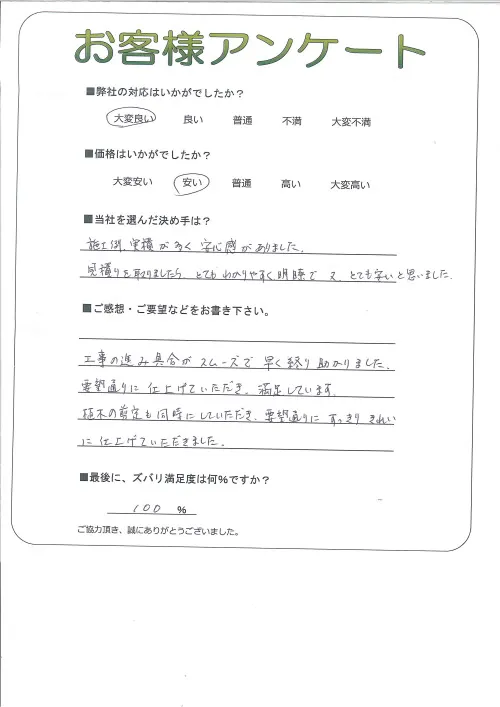 お客様アンケート
■弊社の対応はいかがでしたか？
大変良い 良い 普通 不満 大変不満
■価格はいかがでしたか？
大変安い 安い 普通 高い 大変高い
■当社を選んだ決め手は？
施工例、実積が多く 安心感がありました。
見積りを取りましたら、とても わかりやすく 明瞭で 又、とても安いと思いました。
■ご感想・ご要望などをお書き下さい。
工事の進み具合が スムーズで 早く終り 助かりました。
要望通りに 仕上げていただき、満足しています。
植木の剪定も 同時にしていただき、要望通りに すっきり きれい
に 仕上げていただきました。
■最後に、ズバリ満足度は何%ですか？
100 %
ご協力頂き、誠にありがとうございました。